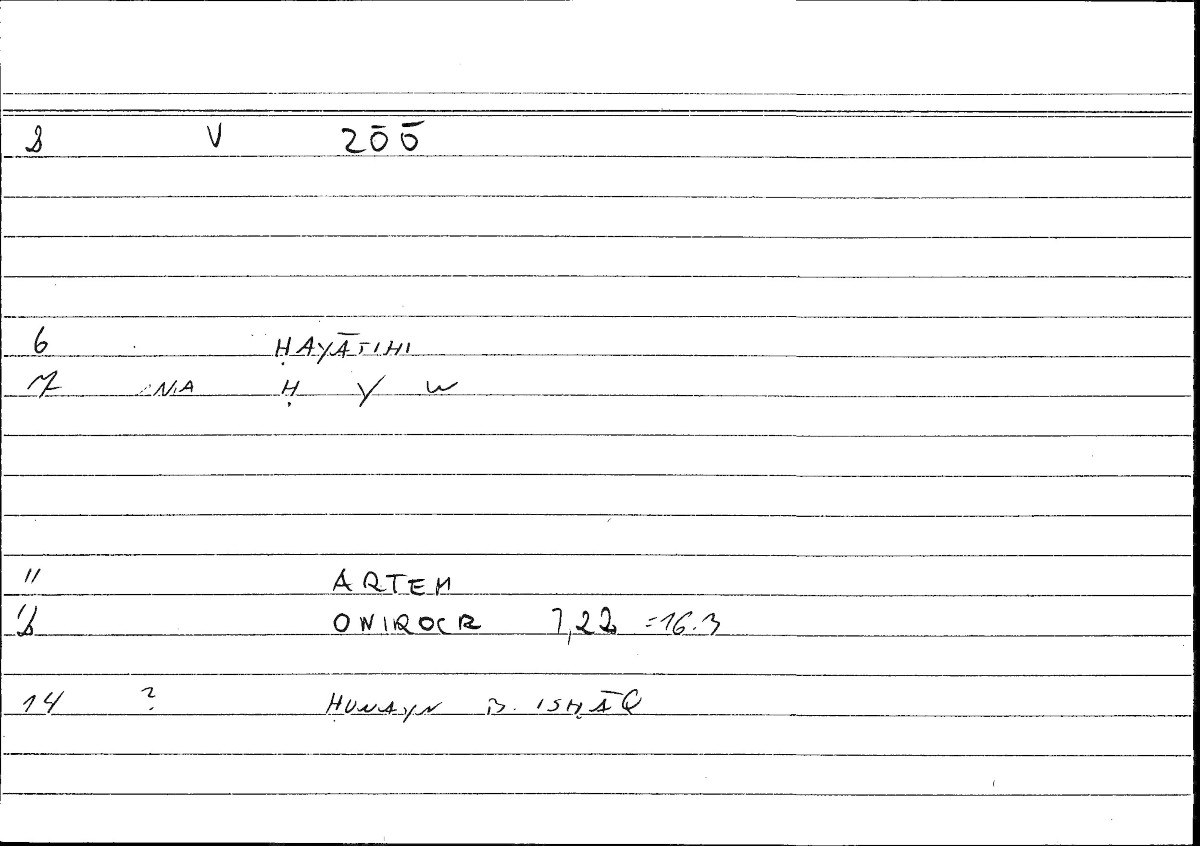 V 2ōō
6 ḤAYĀTIHI
7 NA Ḥ Y W
11 ARTEM
ONIROCR 1,22 =16.3
14 ? ḤUNAYN B. ISḤĀQ